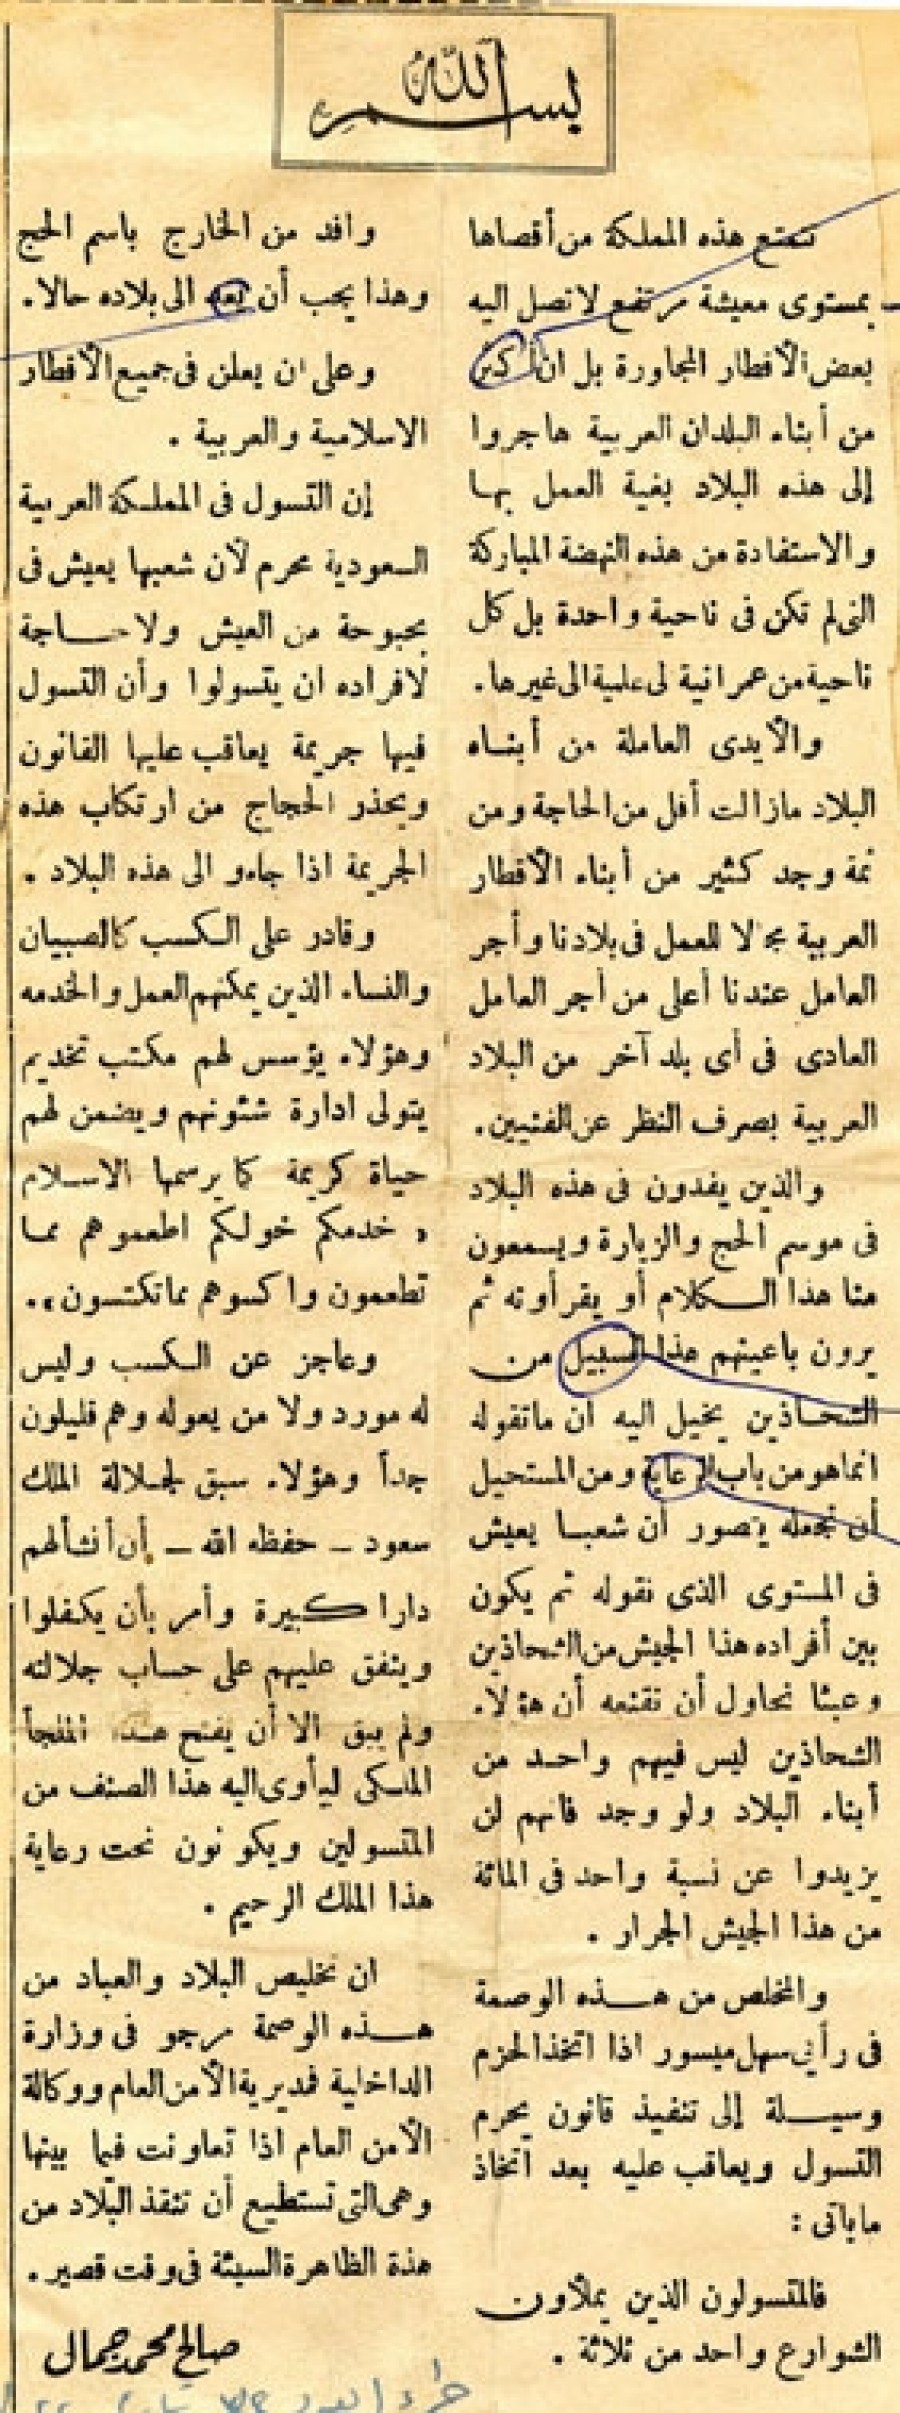 بسم الله
تتمتع هذه المملكة من أقصاها
بمستوى معيشة مرتفع لا تصل اليه
بعض الأقطار المجاورة بل ان الكثير
من أبناء البلدان العربية هاجروا
إلى هذه البلاد بغية العمل بها
والاستفادة من هذه النهضة المباركة
التى لم تكن فى ناحية واحدة بل كل
ناحية من عمرانية لى علمية الى غيرها .
والأيدى العاملة من أبناء
البلاد مازالت أقل من الحاجة ومن
ثمة وجد كثير من أبناء الأقطار
العربية مجالا للعمل فى بلادنا وأجر
العامل عندنا أعلى من أجر العامل
العادى فى أى بلد آخر من البلاد
العربية بصرف النظر عن الفنيين .
والذين يفدون فى هذه البلاد
فى موسم الحج والزيارة ويسمعون
منا هذا الكلام أو يقرأونه ثم
يرون باعينهم هذا السبيل من
الشحاذين يخيل اليه ان ما تقوله
انما هو من باب الدعاية ومن المستحيل
أن نجعله يتصور أن شعبا يعيش
فى المستوى الذى نقوله ثم يكون
بين أفراده هذا الجيش من الشحاذين
وعبثا نحاول أن نقنعه أن هؤلاء
الشحاذين ليس فيهم واحد من
أبناء البلاد ولو وجد فانهم لن
يزيدوا عن نسبة واحد فى المائة
من هذا الجيش الجرار .
والمخلص من هذه الوصمة
فى رأيى سهل ميسور اذا اتخذ الحزم
وسيلة إلى تنفيذ قانون يحرم
التسول ويعاقب عليه بعد اتخاذ
ماياتى :
فالمتسولون الذين يملأون
الشوارع واحد من ثلاثة .
وافد من الخارج باسم الحج
وهذا يجب أن يعد الى بلاده حالا .
وعلى ان يعلن فى جميع الأقطار
الاسلامية والعربية .
إن التسول فى المملكة العربية
السعودية محرم لأن شعبها يعيش فى
بحبوحة من العيش ولا حاجة
لافراده ان يتسولوا وأن التسول
فيها جريمة يعاقب عليها القانون
ويحذر الحجاج من ارتكاب هذه
الجريمة اذا جاءو الى هذه البلاد .
وقادر على الكسب كالصبيان
والنساء الذين يمكنهم العمل والخدمه
وهؤلاء يؤسس لهم مكتب تخديم
يتولى ادارة شئونهم ويضمن لهم
حياة كريمة كما يرسمها الاسلام
« خدمكم خولكم اطعموهم مما
تطعمون واكسوهم مما تكتسون » .
وعاجز عن الكسب وليس
له مورد ولا من يعوله وهم قليلون
جداً وهؤلاء سبق لجلالة الملك
سعود ــ حفظه الله ــ أن أنشأ لهم
دارا كبيرة وأمر بأن يكفلوا
وينفق عليهم على حساب جلالته
ولم يبق الا أن يفتح هذا الملجأ
الملكى ليأوى اليه هذا الصنف من
المتسولين ويكونون تحت رعاية
هذا الملك الرحيم .
ان تخليص البلاد والعباد من
هذه الوصمة مرجو فى وزارة
الداخلية فمديرية الأمن العام ووكالة
الأمن العام اذا تعاونت فيما بينها
وهى التى تستطيع أن تنقذ البلاد من
هذة الظاهرة السيئة فى وقت قصير .
صالح محمد جمال